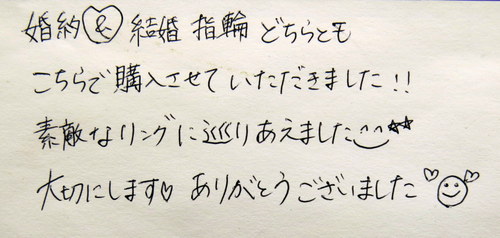 婚約&結婚指輪どちらとも
こちらで購入させていただきました!!
素敵なリングに巡りあえました^^☆☆
大切にします♡ありがとうございました